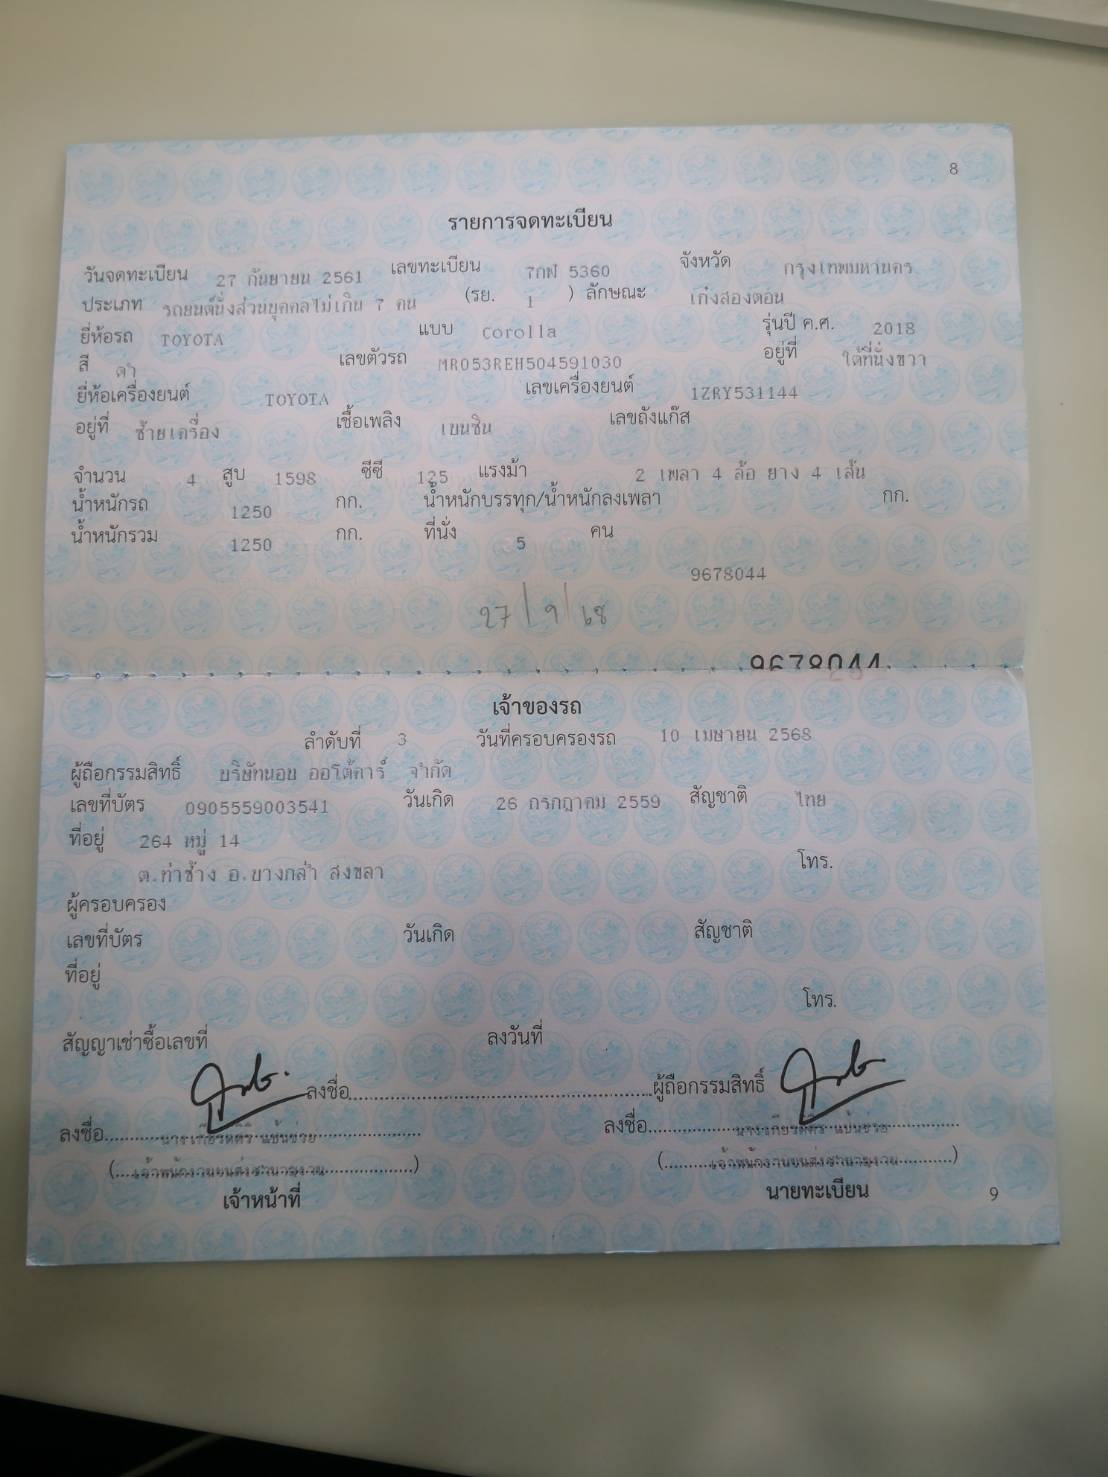 8
รายการจดทะเบียน
วันจดทะเบียน 27 กันยายน 2561 เลขทะเบียน 7กฬ 5360 จังหวัด กรุงเทพมหานคร
ประเภท รถยนต์นั่งส่วนบุคคลไม่เกิน 7 คน (รย. 1 ) ลักษณะ เก๋งสองตอน
ยี่ห้อรถ TOYOTA แบบ Corolla รุ่นปี ค.ศ. 2018
สี ดำ เลขตัวรถ MR053REH504591030 อยู่ที่ ใต้ที่นั่งขวา
ยี่ห้อเครื่องยนต์ TOYOTA เลขเครื่องยนต์ 1ZRY531144
อยู่ที่ ซ้ายเครื่อง เชื้อเพลิง เบนซิน เลขถังแก๊ส
จำนวน 4 สูบ 1598 ซีซี 125 แรงม้า 2 เพลา 4 ล้อ ยาง 4 เส้น
น้ำหนักรถ 1250 กก. น้ำหนักบรรทุก/น้ำหนักลงเพลา กก.
น้ำหนักรวม 1250 กก. ที่นั่ง 5 คน
9678044
27/9/68
9678044
เจ้าของรถ
ลำดับที่ 3 วันที่ครอบครองรถ 10 เมษายน 2568
ผู้ถือกรรมสิทธิ์ บริษัทนอบ ออโต้คาร์ จำกัด
เลขที่บัตร 0905559003541 วันเกิด 26 กรกฎาคม 2559 สัญชาติ ไทย
ที่อยู่ 264 หมู่ 14
ต.ท่าช้าง อ.บางกล่ำ สงขลา โทร.
ผู้ครอบครอง
เลขที่บัตร วันเกิด สัญชาติ
ที่อยู่
โทร.
สัญญาเช่าซื้อเลขที่ ลงวันที่
ลงชื่อ ผู้ถือกรรมสิทธิ์
ลงชื่อ ลงชื่อ
(เจ้าพนักงานขนส่งชำนาญงาน) (เจ้าพนักงานขนส่งชำนาญงาน)
เจ้าหน้าที่ นายทะเบียน 9